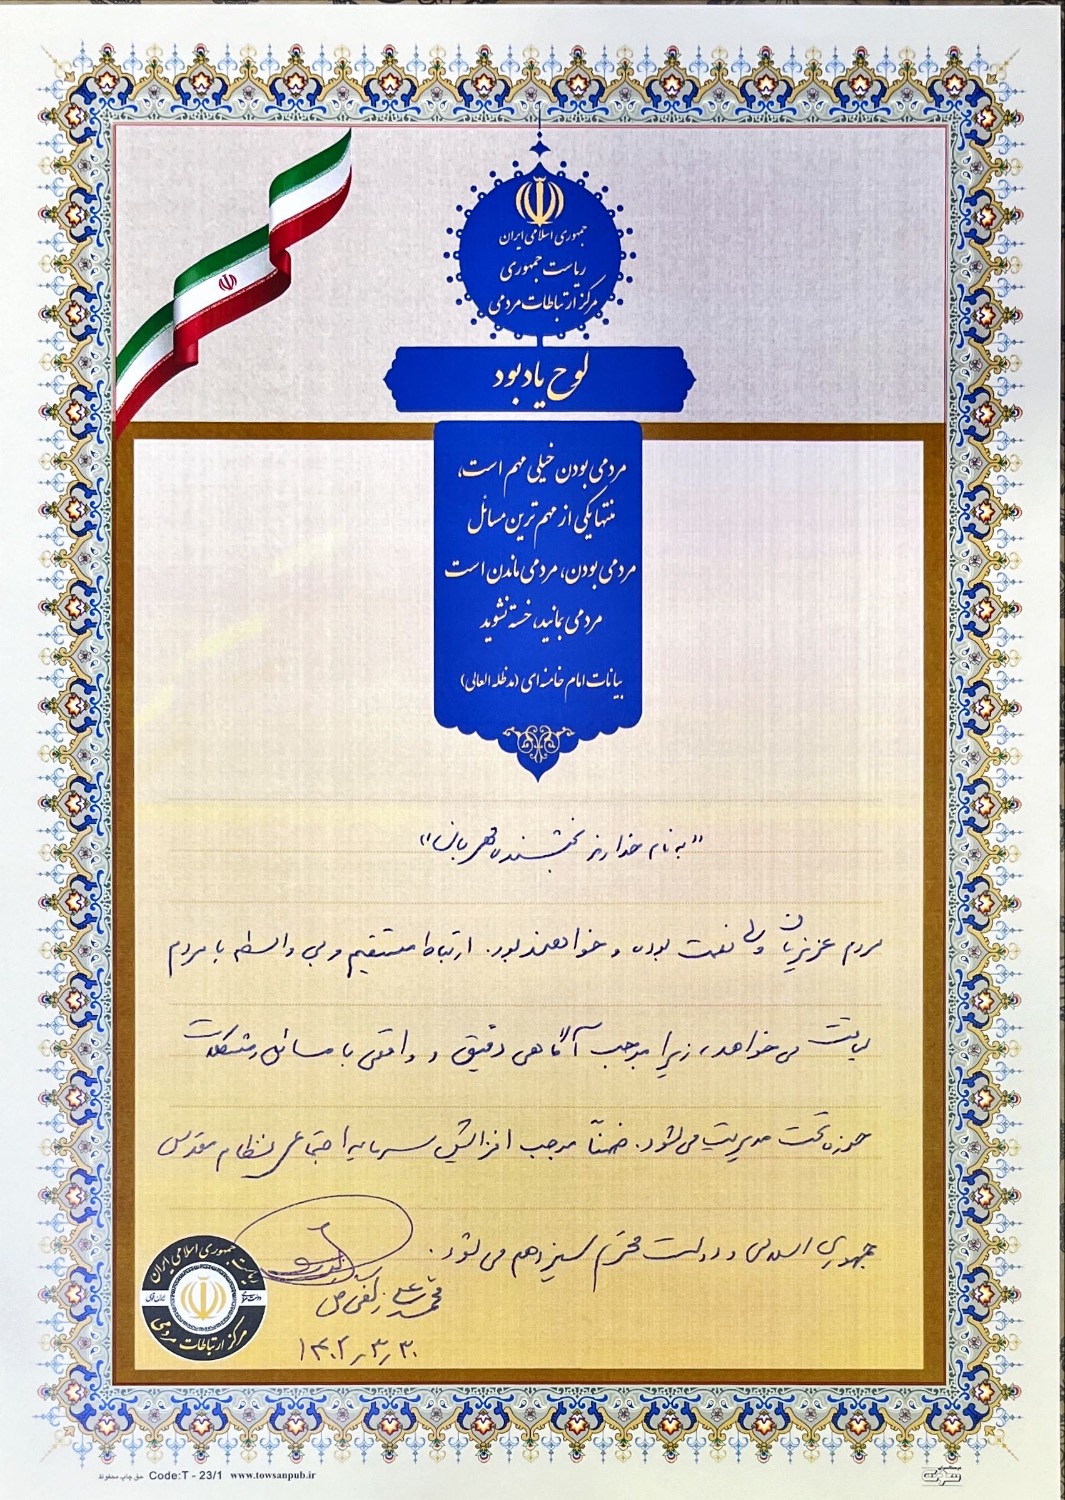 جمهوری اسلامی ایران
ریاست جمهوری
مرکز ارتباطات مردمی
لوح یادبود
مردمی بودن خیلی مهم است،
منتها یکی از مهم ترین مسائل
مردمی بودن، مردمی ماندن است
مردمی بمانید، خسته نشوید
بیانات امام خامنه ای (مدظله العالی)
"به نام خداوند بخشنده مهربان"
مردم عزیزمان ولی نعمت بوده و خواهند بود. ارتباط مستقیم و بی واسطه با مردم
می‌خواهد، زیرا موجب آگاهی دقیق و واقعی با مسائل و مشکلات
حوزه تحت مدیریت می‌شود. ضمناً موجب افزایش سرمایه اجتماعی نظام مقدس
جمهوری اسلامی و دولت محترم سیزدهم می شود.
محمد علی زلفی گل
۱۴۰۲/۳/۳۰
ریاست جمهوری اسلامی ایران
مرکز ارتباطات مردمی
حق چاپ محفوظ Code:T - 23/1 www.towsanpub.ir